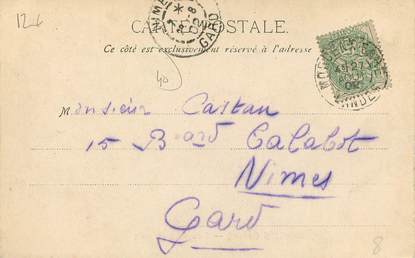 12-6
CARTE POSTALE.
Ce côté est exclusivement réservé à l'adresse
NIMES
GARD
40
Monsieur Castan
15 Bard Calabot
Nimes
Gard
8